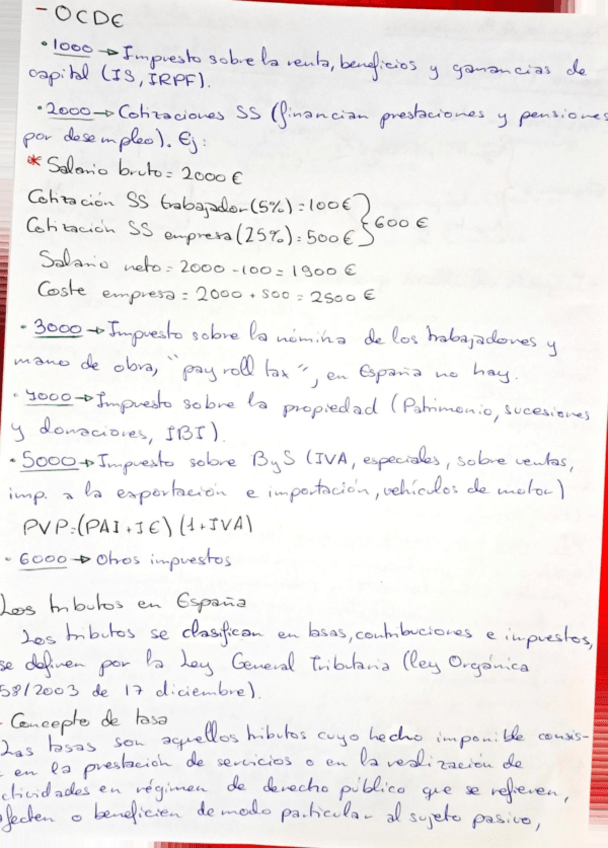 - OCDE
• 1000 → Impuesto sobre la renta, beneficios y ganancias de
capital (IS, IRPF).
• 2000 → Cotizaciones SS (financian prestaciones y pensiones
por desempleo). Ej:
* Salario bruto = 2000 €
Cotización SS trabajador (5%) = 100 €
Cotización SS empresa (25%) = 500 € } 600 €
Salario neto = 2000 - 100 = 1900 €
Coste empresa = 2000 + 500 = 2500 €
• 3000 → Impuesto sobre la nómina de los trabajadores y
mano de obra, "pay roll tax", en España no hay.
• 4000 → Impuesto sobre la propiedad (Patrimonio, sucesiones
y donaciones, IBI).
• 5000 → Impuesto sobre ByS (IVA, especiales, sobre ventas,
imp. a la exportación e importación, vehículos de motor)
PVP = (PAI + IE) (1 + IVA)
• 6000 → Otros impuestos
Los tributos en España
Los tributos se clasifican en tasas, contribuciones e impuestos,
se definen por la Ley General Tributaria (ley Orgánica
58/2003 de 17 diciembre).
- Concepto de tasa
Las tasas son aquellos tributos cuyo hecho imponible consis-
te en la prestación de servicios o en la realización de
ctividades en régimen de derecho público que se refieren,
fecten o beneficien de modo particular al sujeto pasivo,